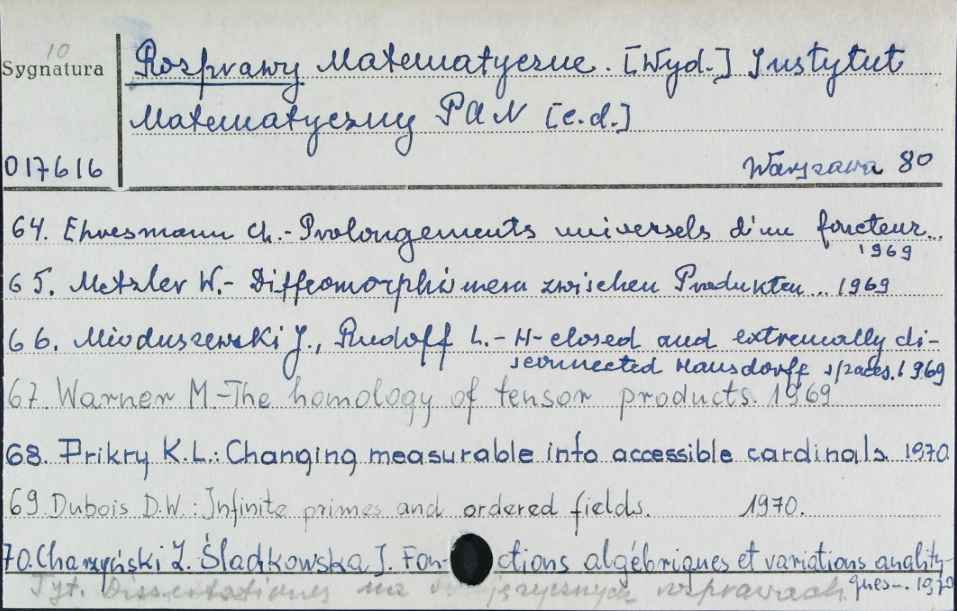 10
Sygnatura
Rozprawy Matematyczne. [Wyd.] Instytut
Matematyczny PAN [c.d.]
017616
Warszawa 80
64. Ehresmann Ch.- Prolongements universels d'un foncteur...
1969
65. Metzler W.- Diffeomorphismen zwischen Produkten... 1969
66. Mioduszewski J., Rudolf L.- H-closed and extremally di-
sconnected Hausdorff spaces. 1969
67. Warner M.-The homology of tensor products. 1969
68. Prikry K.L.: Changing measurable into accessible cardinals. 1970
69 Dubois D.W.: Infinite primes and ordered fields. 1970.
70. Charzyński Z. Śladkowska J. Fon- ctions algébriques et variations anality-
ques-. 1970
Tyt. Dissertationes na rozprawach.